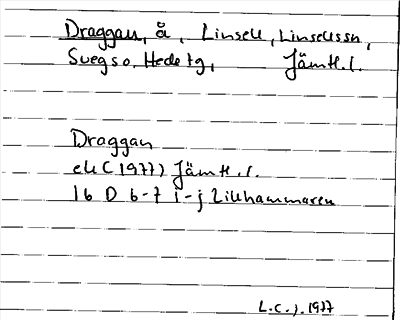 Draggan, å, Linsell, Linsellssn,
Svegs o. Hede tg, Jämtl. l.
Draggan
ek (1977) Jämtl. l.
16 D 6-7 i-j Lillhammaren
L.C.j. 1977